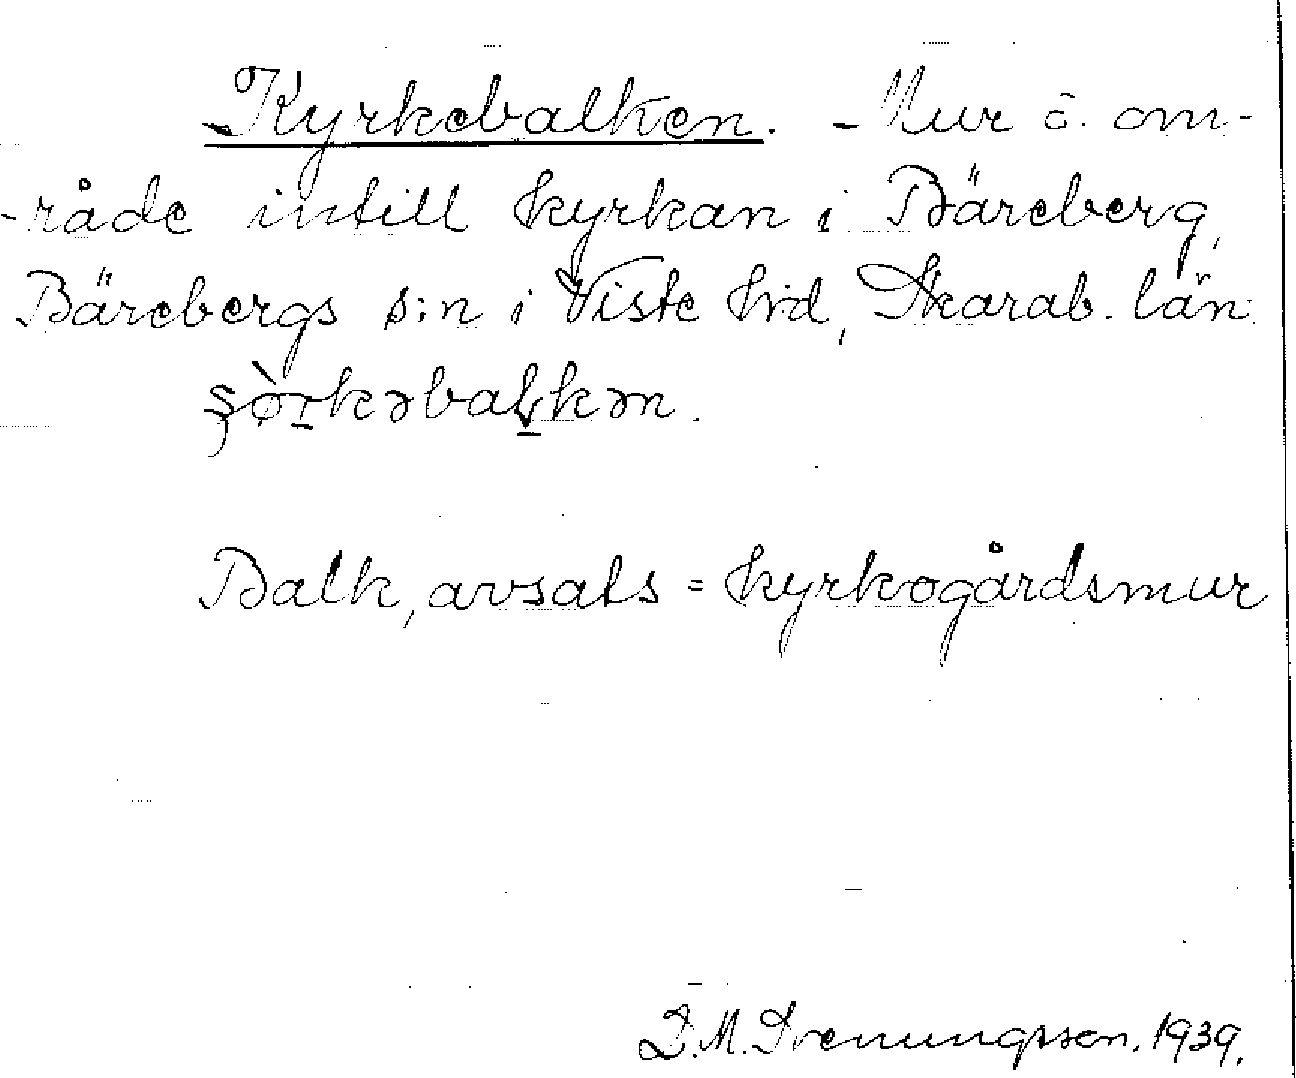 Kyrkebalken. - Mur o. om-
-råde intill kyrkan i Bäreberg,
Bärebergs s:n i Viste hd, Skarab. län.
balkən.
Balk, avsats = kyrkogårdsmur
D. M. Svenungsson. 1939.